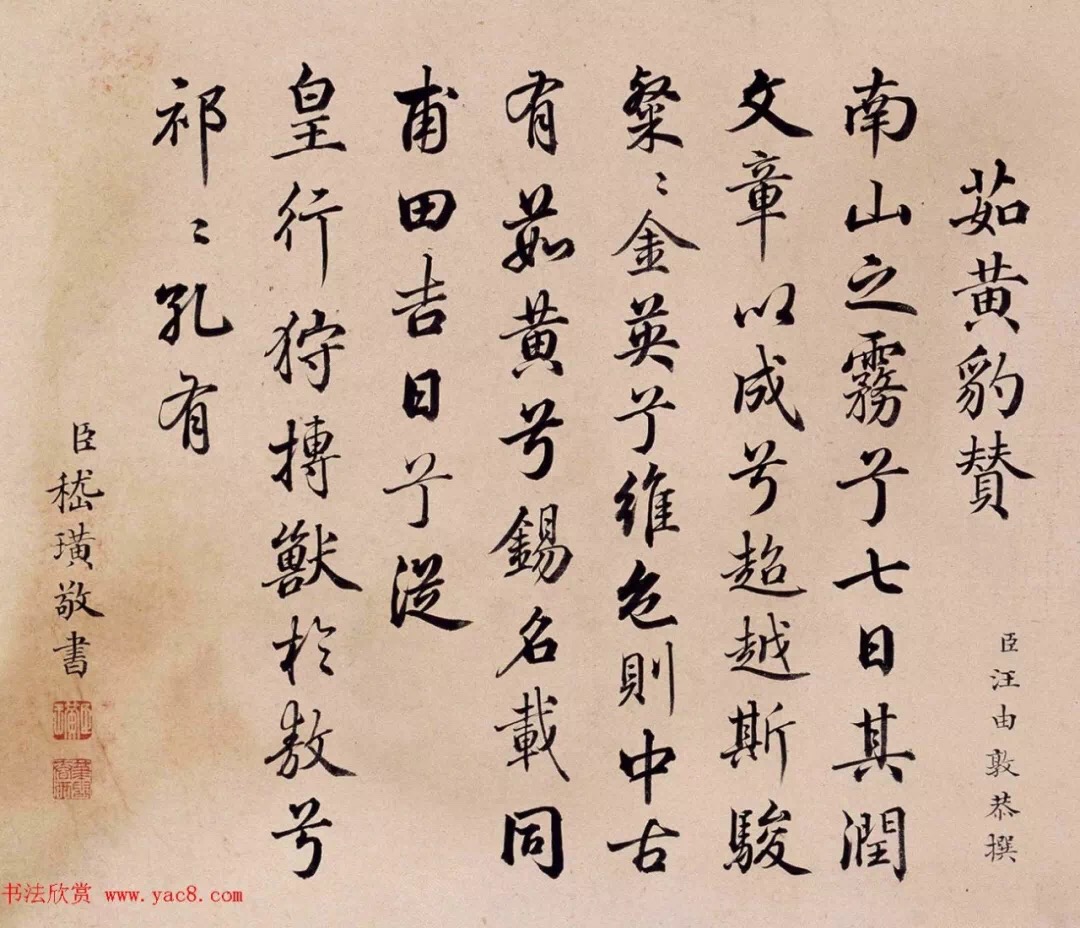 茹黄豹赞
臣汪由敦恭撰
南山之霧兮七日其潤
文章以成兮超越斯駿
粲〻金英兮維色則中古
有茹黄兮錫名載同
甫田吉日兮從
皇行狩搏獸於敖兮
祁〻孔有
臣嵇璜敬書
书法欣赏 www.yac8.com